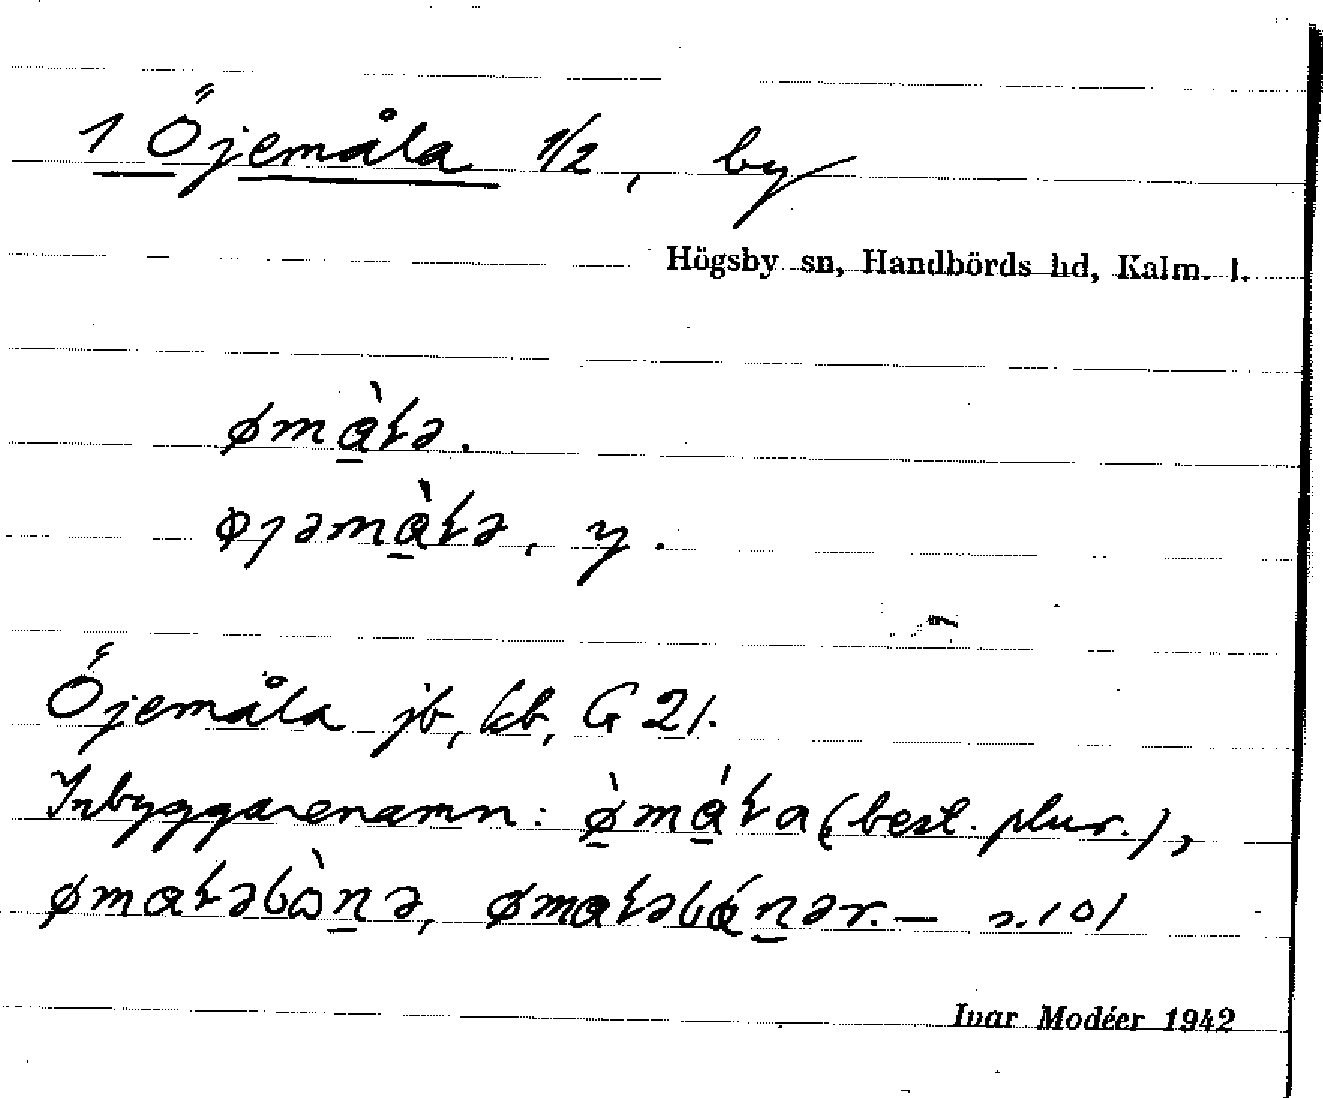 1 Öjemåla 1/2, by
Högsby sn, Handbörds hd, Kalm. l.
ømàɽə.
øjəmàɽə, y.
Öjemåla jb, kb, G 21.
Inbyggarenamn: ø̀máɽa (best. plur.),
ømaɽəbòn̠ə, ømaɽəbǿn̠ər. — s. 101
Ivar Modéer 1942